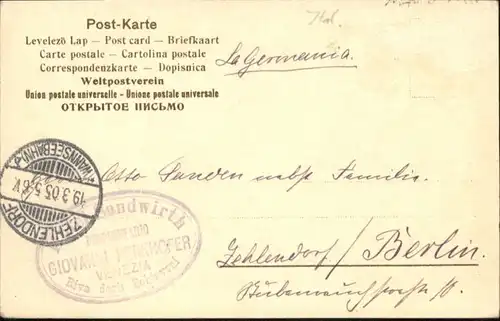 Post-Karte
Levelező Lap — Post card — Briefkaart
Carte postale — Cartolina postale
Correspondenzkarte — Dopisnica
Weltpostverein
Union postale universelle - Unione postale universale
ОТКРЫТОЕ ПИСЬМО
La Germania.
ZEHLENDORF
19.3.05.5-6N
(WANNSEEBAHN)
Otto Sanden nebst Familie.
GIOVANNI
VENEZIA
Riva degli
Zehlendorf/Berlin.